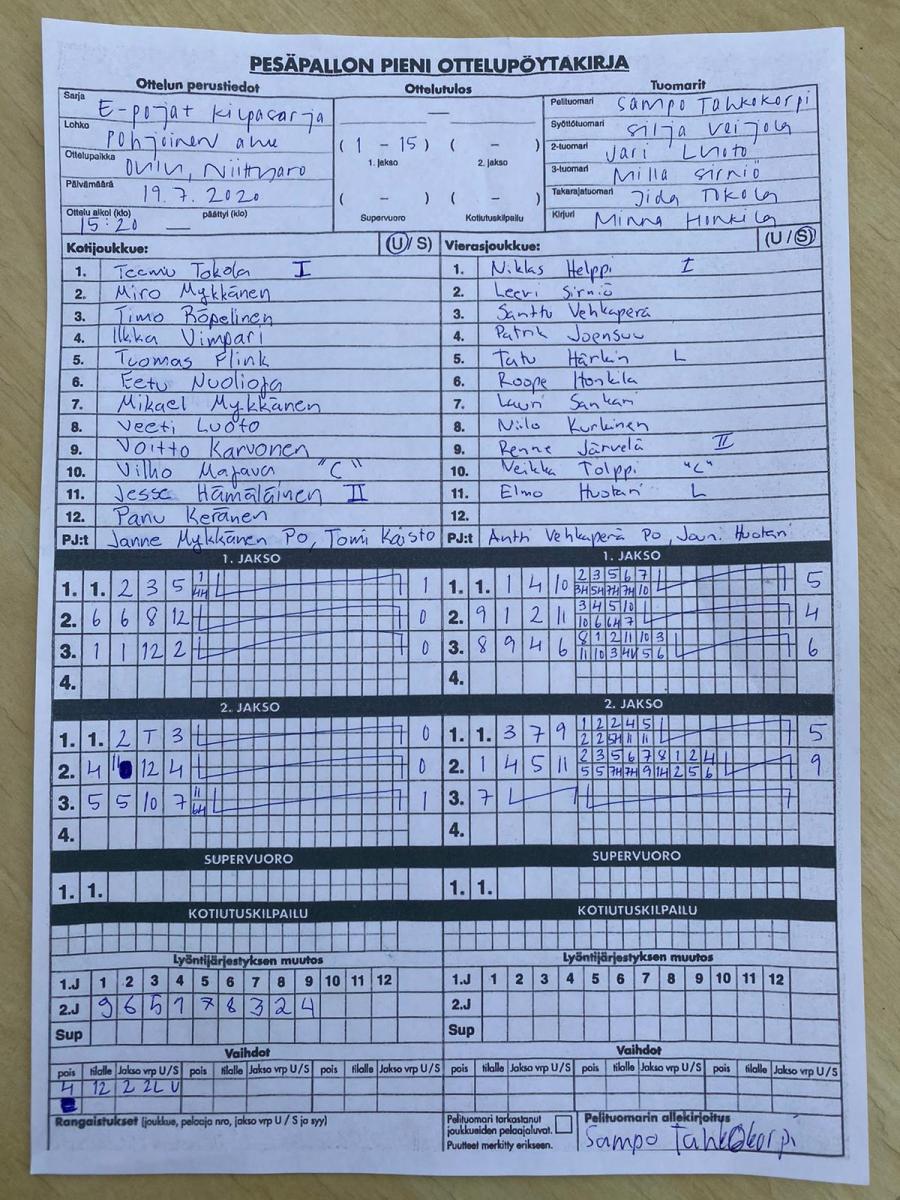 PESÄPALLON PIENI OTTELUPÖYTAKIRJA
Ottelun perustiedot Ottelutulos Tuomarit
Sarja E-pojat kilpasarja
Lohko Pohjoinen alue
Ottelupaikka Oulu, Niittyaro
Päivämäärä 19.7.2020
Ottelu alkoi (klo) 15:20 päättyi (klo) —
—
( 1 - 15 ) ( - )
1. jakso 2. jakso
( - ) ( - )
Supervuoro Kotiutuskilpailu
Pelituomari Sampo Tahkokorpi
Syöttötuomari Silja Veijola
2-tuomari Jari Luoto
3-tuomari Milla Sirniö
Takarajatuomari Iida Tokola
Kirjuri Minna Honkila
Kotijoukkue: (U/ S)
1. Teemu Tokola I
2. Miro Mykkänen
3. Timo Röpelinen
4. Ilkka Vimpari
5. Tuomas Flink
6. Eetu Nuolioja
7. Mikael Mykkänen
8. Veeti Luoto
9. Voitto Karvonen
10. Vilho Majava "C"
11. Jesse Hämäläinen II
12. Panu Keränen
PJ:t Janne Mykkänen PO, Tomi Kaisto
Vierasjoukkue: (U / S)
1. Niklas Helppi I
2. Leevi Sirniö
3. Santtu Vehkaperä
4. Patrik Joensuu
5. Tatu Härkin L
6. Roope Honkila
7. Lauri Sankari
8. Niilo Kurkinen
9. Renne Järvelä II
10. Veikka Tolppi "C"
11. Elmo Huotari L
12.
PJ:t Antti Vehkaperä PO, Jouni Huotari
1. JAKSO
1. 1. 2 3 5 1 4H 1
2. 6 6 8 12 0
3. 1 1 12 2 0
4.
1. JAKSO
1. 1. 1 4 10 2 3 5 6 7 5
3H 5H 7H 7H 10
2. 9 1 2 11 3 4 5 10 4
10 6 6H 7
3. 8 9 4 6 8 1 2 11 10 3 6
11 10 3 4V 5 6
4.
2. JAKSO
1. 1. 2 T 3 0
2. 4 11 12 4 0
3. 5 5 10 7 11 6H 1
4.
2. JAKSO
1. 1. 3 7 9 1 2 2 4 5 5
2 2 5H 11 11
2. 1 4 5 11 2 3 5 6 7 8 1 2 4 9
5 5 7H 7H 9 1H 2 5 6
3. 7
4.
SUPERVUORO SUPERVUORO
1. 1. 1. 1.
KOTIUTUSKILPAILU KOTIUTUSKILPAILU
Lyöntijärjestyksen muutos Lyöntijärjestyksen muutos
1.J 1 2 3 4 5 6 7 8 9 10 11 12
2.J 9 6 5 1 7 8 3 2 4
Sup
1.J 1 2 3 4 5 6 7 8 9 10 11 12
2.J
Sup
Vaihdot Vaihdot
pois tilalle Jakso vrp U/S pois tilalle Jakso vrp U/S pois tilalle Jakso vrp U/S pois tilalle Jakso vrp U/S pois tilalle Jakso vrp U/S pois tilalle Jakso vrp U/S
4 12 2 2L U
Rangaistukset (joukkue, pelaaja nro, jakso vrp U / S ja syy)
Pelituomari tarkastanut
joukkueiden pelaajaluvat.
Puutteet merkitty erikseen.
Pelituomarin allekirjoitus
Sampo Tahkokorpi